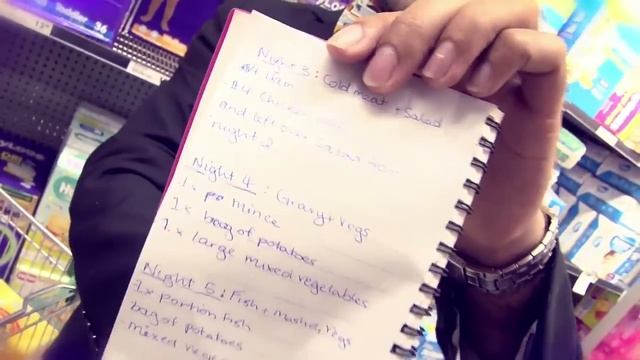 Night 3: Cold meat + Salad
$4 Ham
$4 Chicken
and left over
night 2
Night 4: Gravy + Vegs
1x mince
1x bag of potatoes
1x large mixed vegetables
Night 5: Fish + Mash + Vegs
1x portion fish
bag of potatoes
mixed
Toddler 36